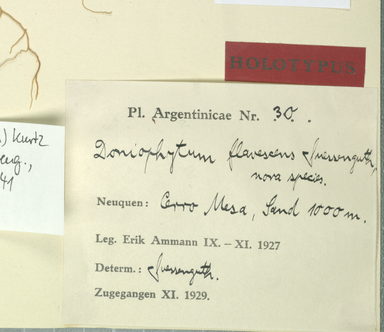 HOLOTYPUS
) Kurtz
eng.,
41
Pl. Argentinicae Nr. 30.
Doniophytum flavescens Suessenguth,
nova species.
Neuquen: Cerro Mesa, Sand 1000 m.
Leg. Erik Ammann IX. – XI. 1927
Determ.: Suessenguth.
Zugegangen XI. 1929.